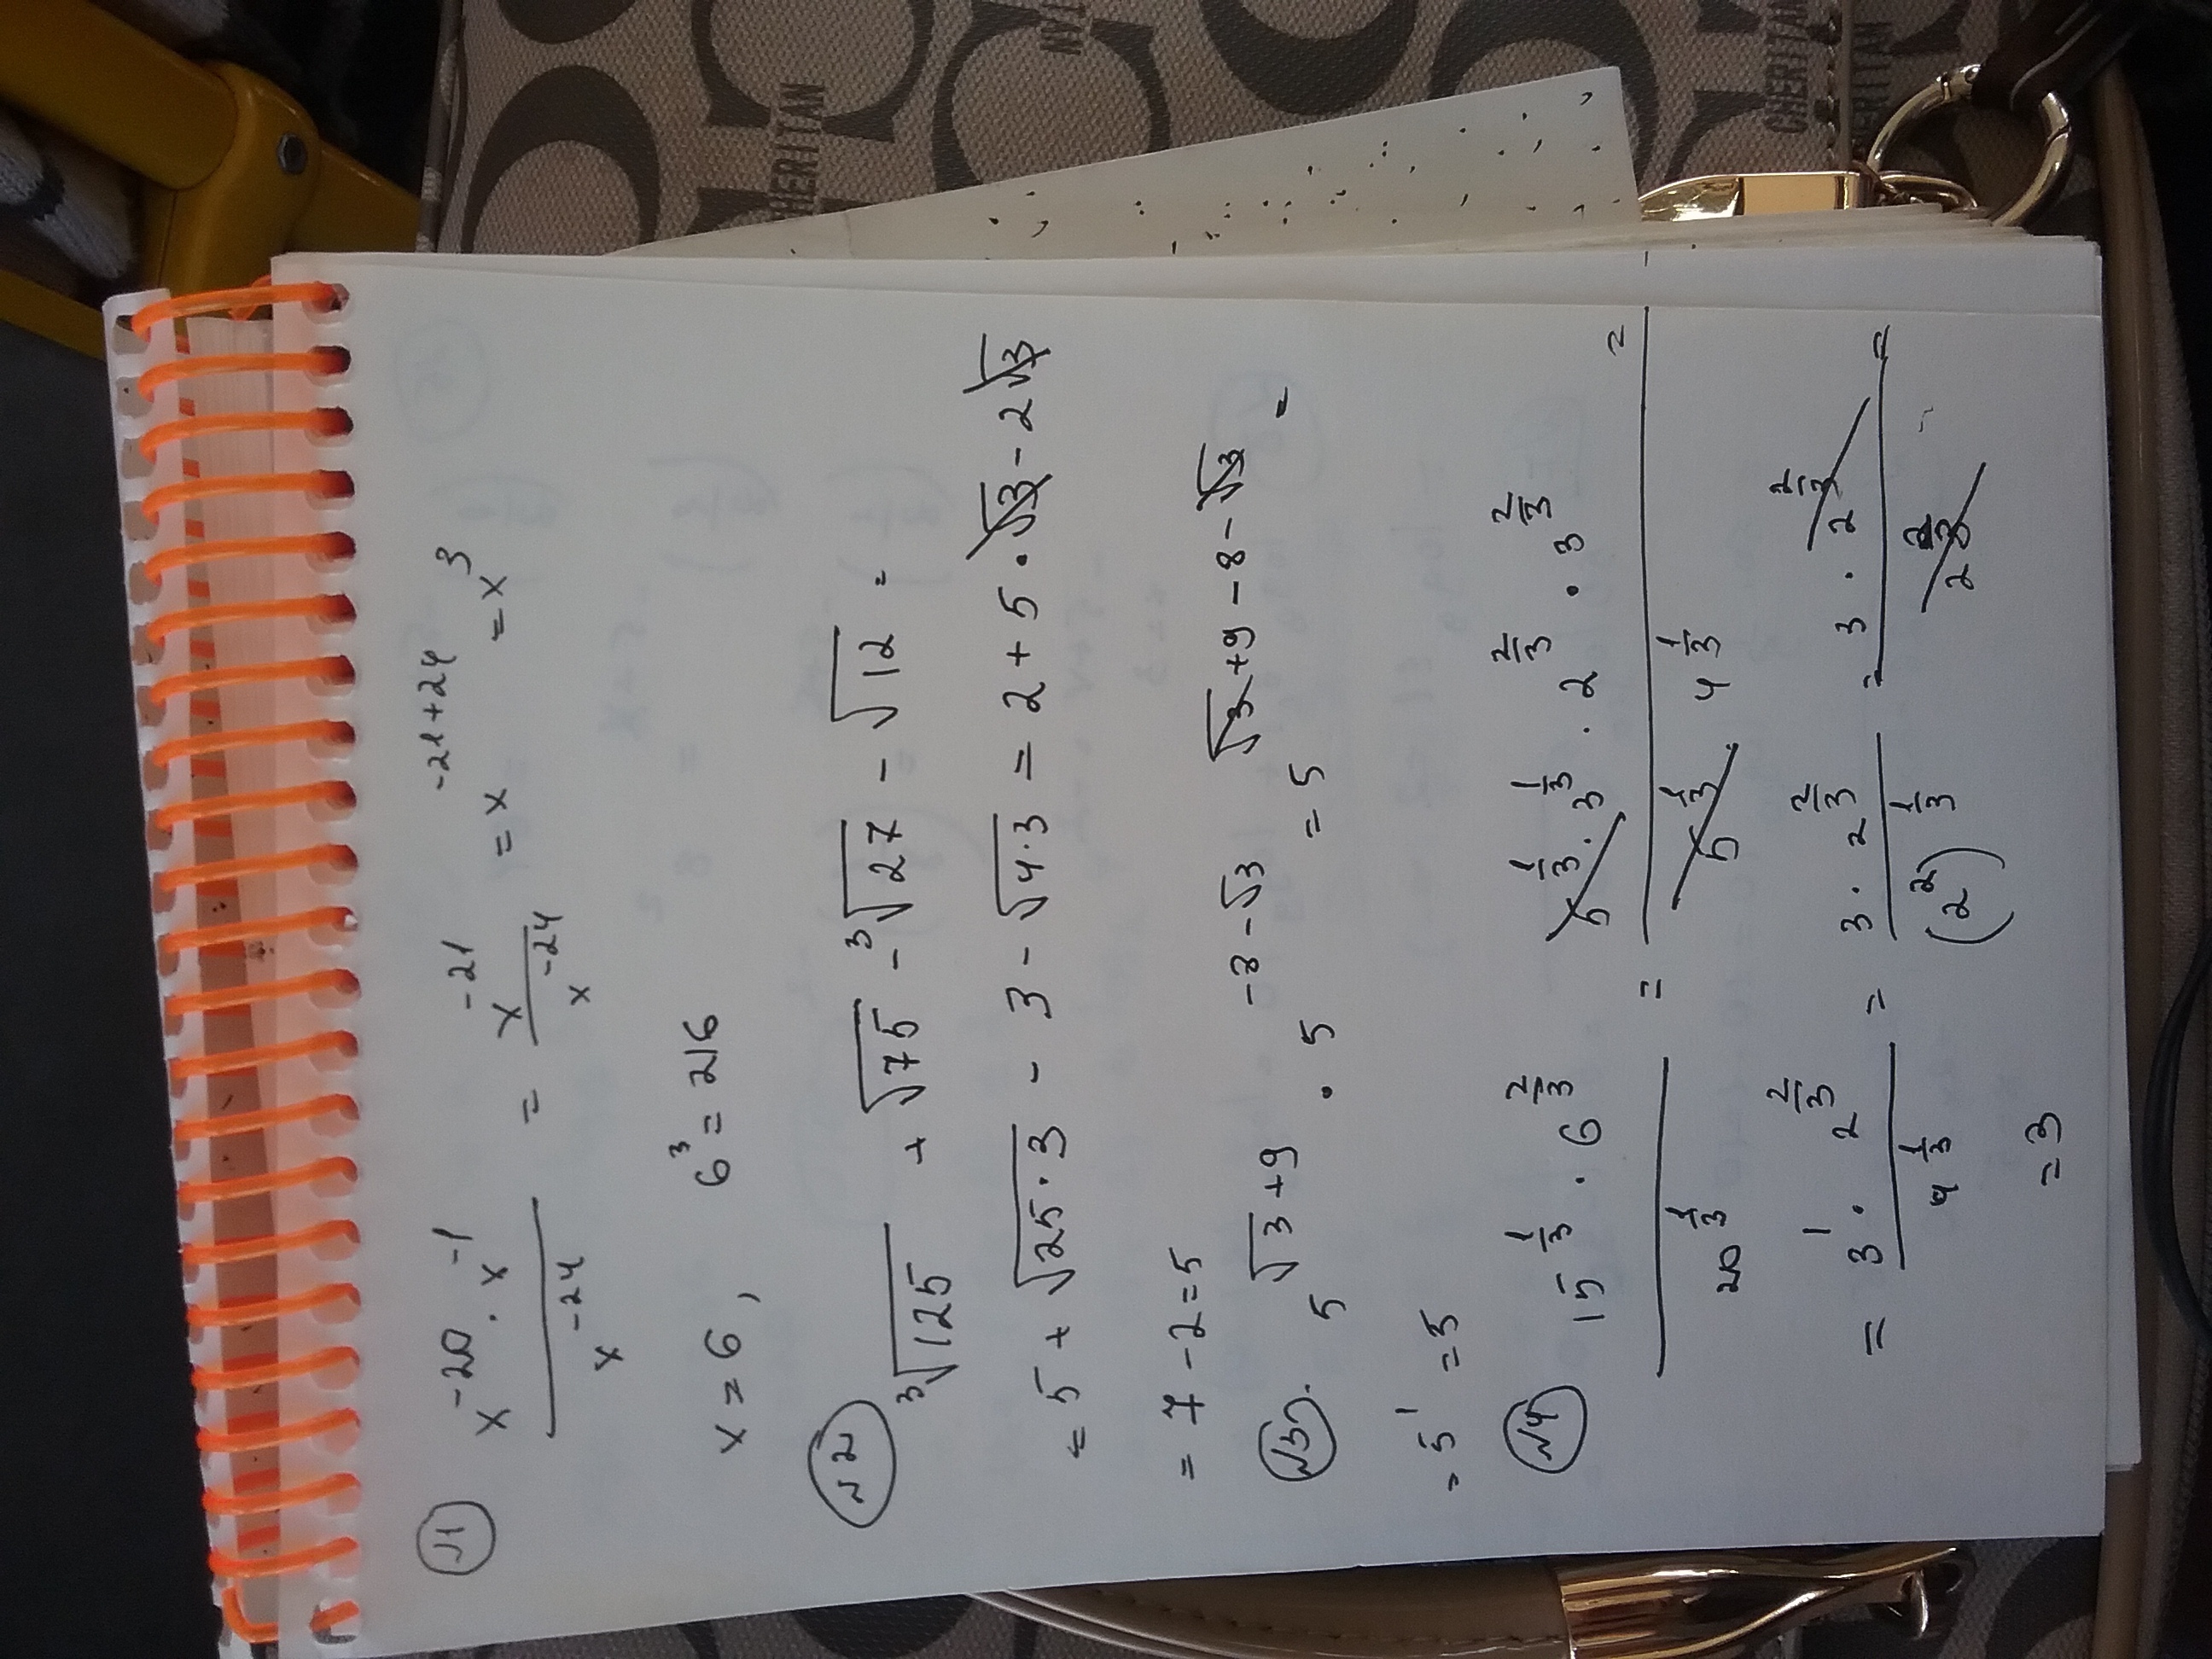 №1 x^{-20} · x^{-1} / x^{-24} = x^{-21} / x^{-24} = x^{-21+24} = x^3
x = 6, 6^3 = 216
№2 ∛125 + √75 - ∛27 - √12 =
= 5 + √25·3 - 3 - √4·3 = 2 + 5·√3 - 2√3
= 7 - 2 = 5
№3. 5^{√3+9} · 5^{-8-√3} = 5^{√3+9-8-√3} =
= 5^1 = 5
№4 15^{1/3} · 6^{2/3} / 20^{1/3} = 5^{1/3} · 3^{1/3} · 2^{2/3} · 3^{2/3} / 5^{1/3} 4^{1/3} =
= 3^1 · 2^{2/3} / 4^{1/3} = 3 · 2^{2/3} / (2^2)^{1/3} = 3 · 2^{2/3} / 2^{2/3} =
= 3
CHERITAN
CHERITAN
CHERITAN